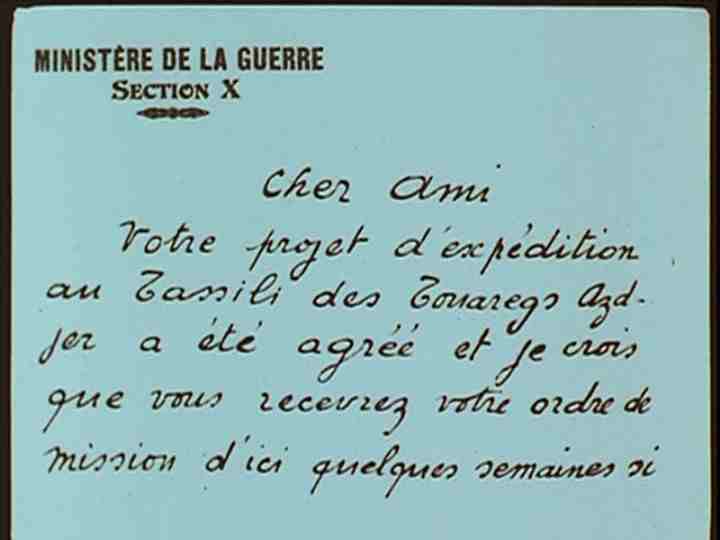 MINISTÈRE DE LA GUERRE
SECTION X
Cher Ami
Votre projet d'expédition
au Tassili des Touaregs Azd-
jer a été agréé et je crois
que vous recevrez votre ordre de
mission d'ici quelques semaines si